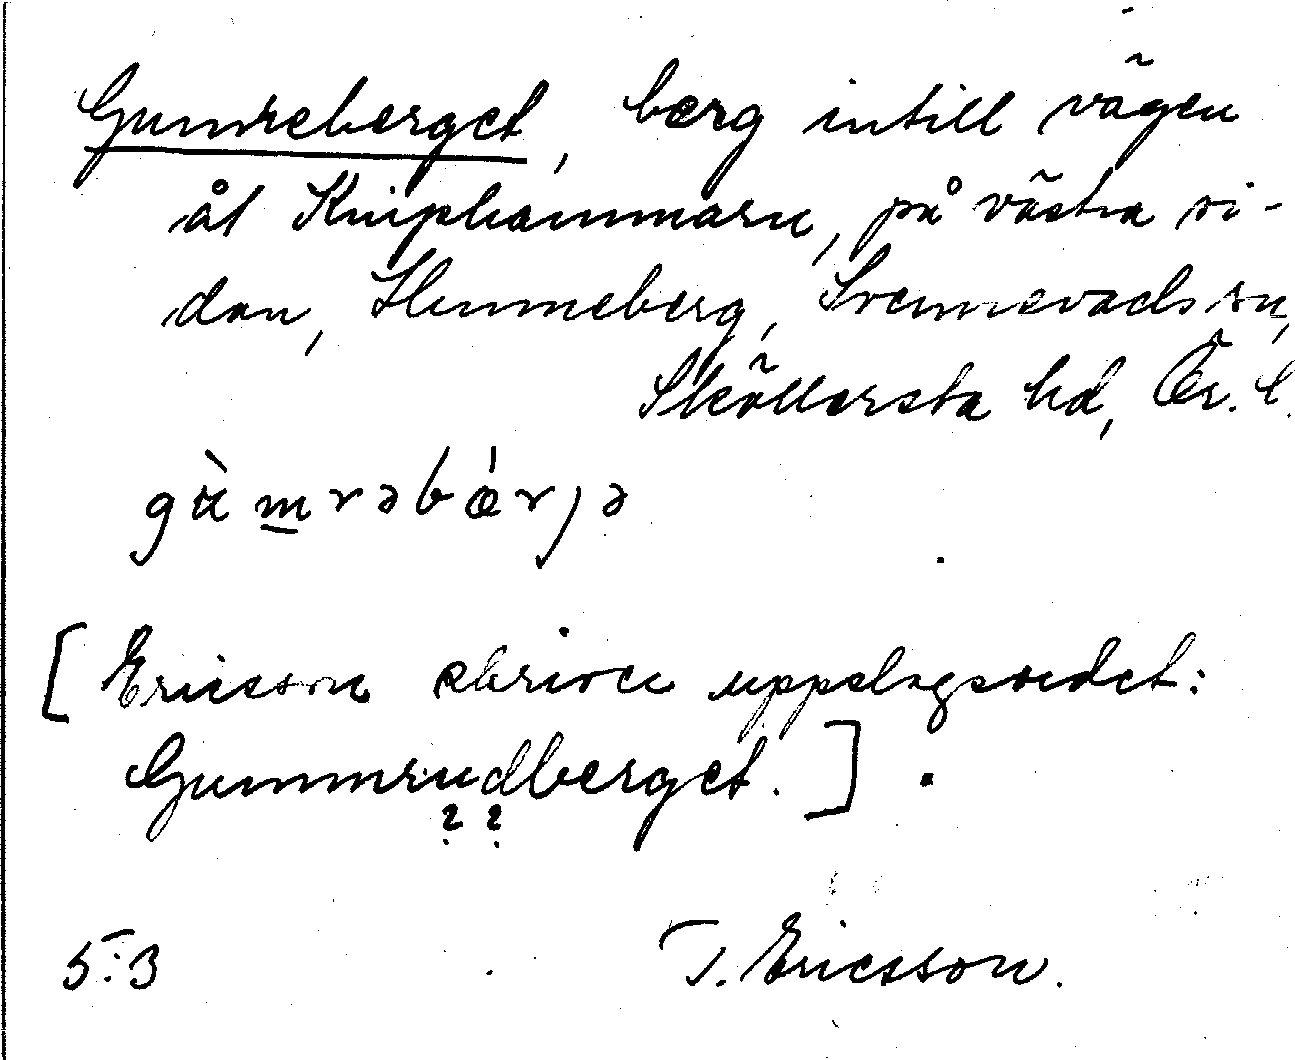 Gumreberget, berg intill vägen
åt Kniphammaren, på västra si-
dan, Hinneberg, Svennevads sn,
Sköllersta hd, Ör. l.
gɯ̀m̲rəbǽrjə
[Ericsson skriver uppslagsordet:
Gummrudberget.]
? ?
5:3 T. Ericsson.